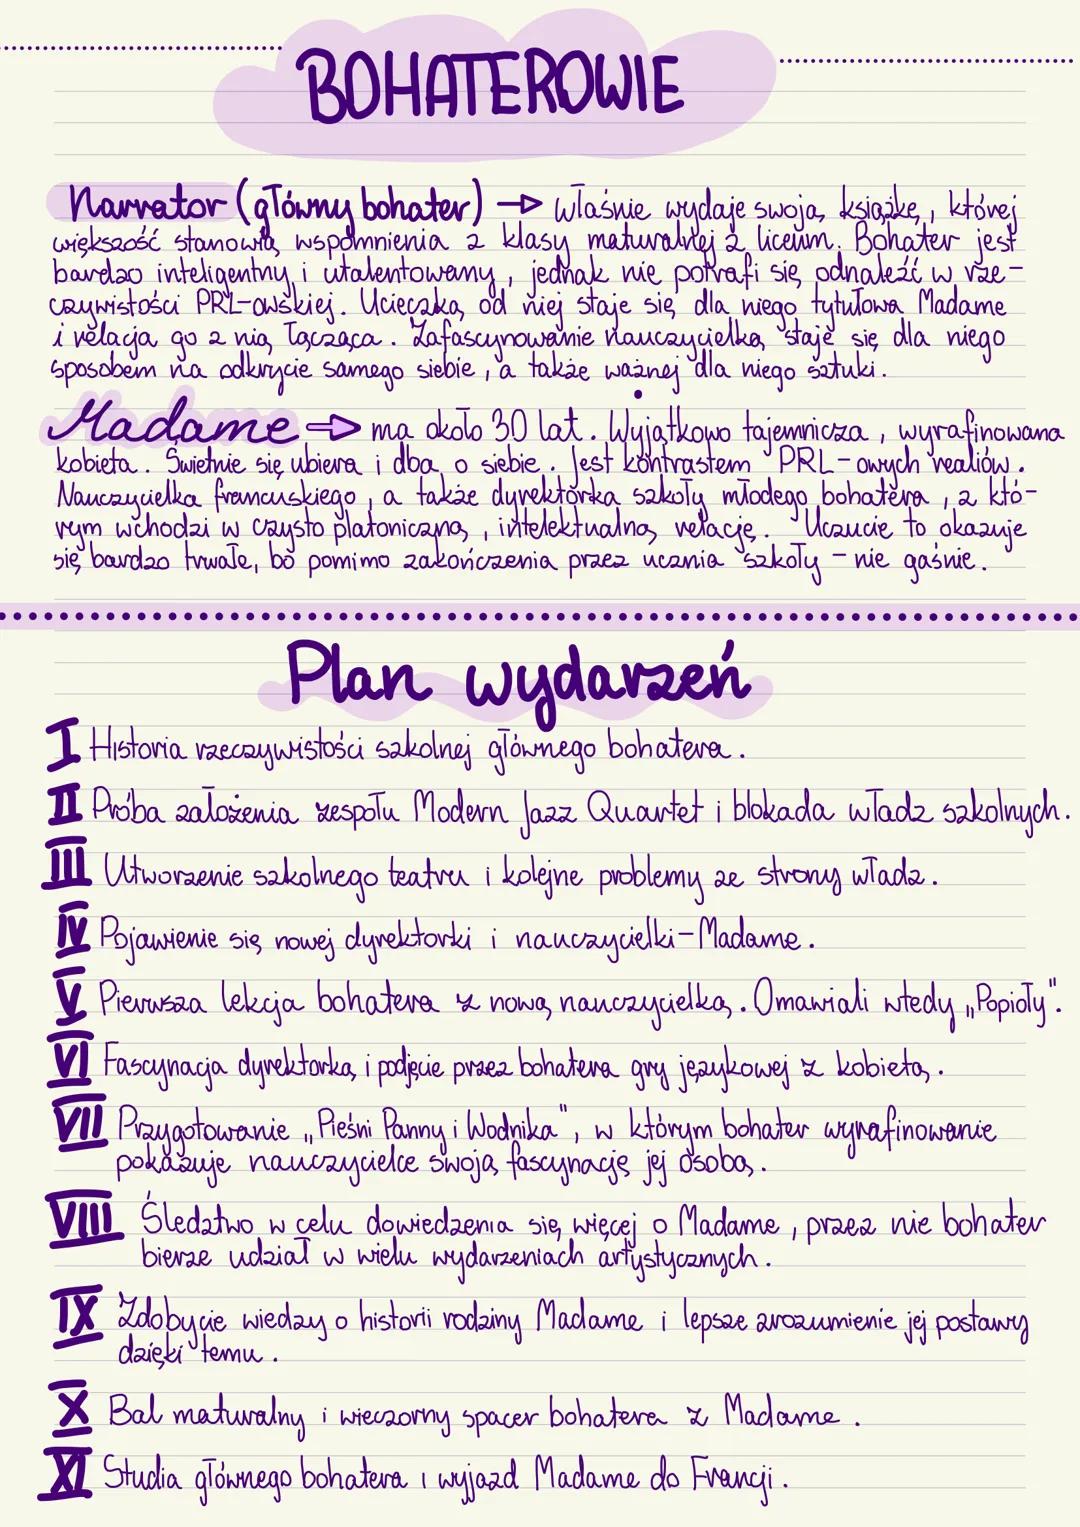 BOHATEROWIE
Narrator (główny bohater) → właśnie wydaje swoją książkę, której
większość stanowią wspomnienia z klasy maturalnej z liceum. Bohater jest
bardzo inteligentny i utalentowany, jednak nie potrafi się odnaleźć w rze-
czywistości PRL-owskiej. Ucieczką od niej staje się dla niego tytułowa Madame
i relacja go z nią łącząca. Zafascynowanie nauczycielką staje się dla niego
sposobem na odkrycie samego siebie, a także ważnej dla niego sztuki.
Madame → ma około 30 lat. Wyjątkowo tajemnicza, wyrafinowana
kobieta. Świetnie się ubiera i dba o siebie. Jest kontrastem PRL-owych realiów.
Nauczycielka francuskiego, a także dyrektorka szkoły młodego bohatera, z któ-
rym wchodzi w czysto platoniczną, intelektualną relację. Uczucie to okazuje
się bardzo trwałe, bo pomimo zakończenia przez ucznia szkoły - nie gaśnie.
Plan wydarzeń
I Historia rzeczywistości szkolnej głównego bohatera.
II Próba założenia zespołu Modern Jazz Quartet i blokada władz szkolnych.
III Utworzenie szkolnego teatru i kolejne problemy ze strony władz.
IV Pojawienie się nowej dyrektorki i nauczycielki-Madame.
V Pierwsza lekcja bohatera z nową nauczycielką. Omawiali wtedy „Popioły".
VI Fascynacja dyrektorką i podjęcie przez bohatera gry językowej z kobietą.
VII Przygotowanie „Pieśni Panny i Wodnika", w którym bohater wyrafinowanie
pokazuje nauczycielce swoją fascynację jej osobą.
VIII Śledztwo w celu dowiedzenia się więcej o Madame, przez nie bohater
bierze udział w wielu wydarzeniach artystycznych.
IX Zdobycie wiedzy o historii rodziny Madame i lepsze zrozumienie jej postawy
dzięki temu.
X Bal maturalny i wieczorny spacer bohatera z Madame.
XI Studia głównego bohatera i wyjazd Madame do Francji.